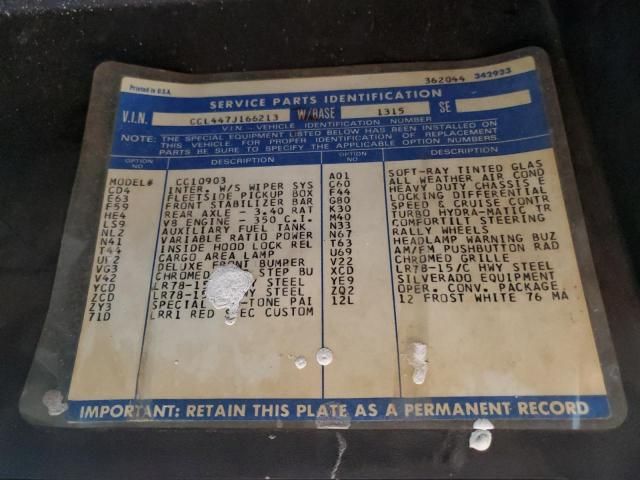 Printed in U.S.A.
362044 342933
SERVICE PARTS IDENTIFICATION
V.I.N. CCL447J166213 W/BASE 1315 SE
V.I.N - VEHICLE IDENTIFICATION NUMBER
NOTE: THE SPECIAL EQUIPMENT LISTED BELOW HAS BEEN INSTALLED ON
THIS VEHICLE. FOR PROPER IDENTIFICATION OF REPLACEMENT
PARTS BE SURE TO SPECIFY THE APPLICABLE OPTION NUMBERS.
OPTION NO DESCRIPTION OPTION NO. DESCRIPTION
MODEL# CC10903
CD4 INTER. W/S WIPER SYS
E63 FLEETSIDE PICKUP BOX
F59 FRONT STABILIZER BAR
HE4 REAR AXLE - 3.40 RAT
LS9 V8 ENGINE - 350 C.I.
NL2 AUXILIARY FUEL TANK
N41 VARIABLE RATIO POWER
T44 INSIDE HOOD LOCK REL
UF2 CARGO AREA LAMP
VG3 DELUXE FRONT BUMPER
V42 CHROMED STEP BU
YCD LR78-15 HWY STEEL
ZCD LR78-15 HWY STEEL
ZY3 SPECIAL -TONE PAI
71D LRR1 RED CUSTOM
A01 SOFT-RAY TINTED GLAS
C60 ALL WEATHER AIR COND
F44 HEAVY DUTY CHASSIS E
G80 LOCKING DIFFERENTIAL
K30 SPEED & CRUISE CONTR
M40 TURBO HYDRA-MATIC TR
N33 COMFORTILT STEERING
N67 RALLY WHEELS
T63 HEADLAMP WARNING BUZ
U69 AM/FM PUSHBUTTON RAD
V22 CHROMED GRILLE
XCD LR78-15/C HWY STEEL
YE9 SILVERADO EQUIPMENT
ZQ2 OPER. CONV. PACKAGE
12L 12 FROST WHITE 76 MA
IMPORTANT: RETAIN THIS PLATE AS A PERMANENT RECORD